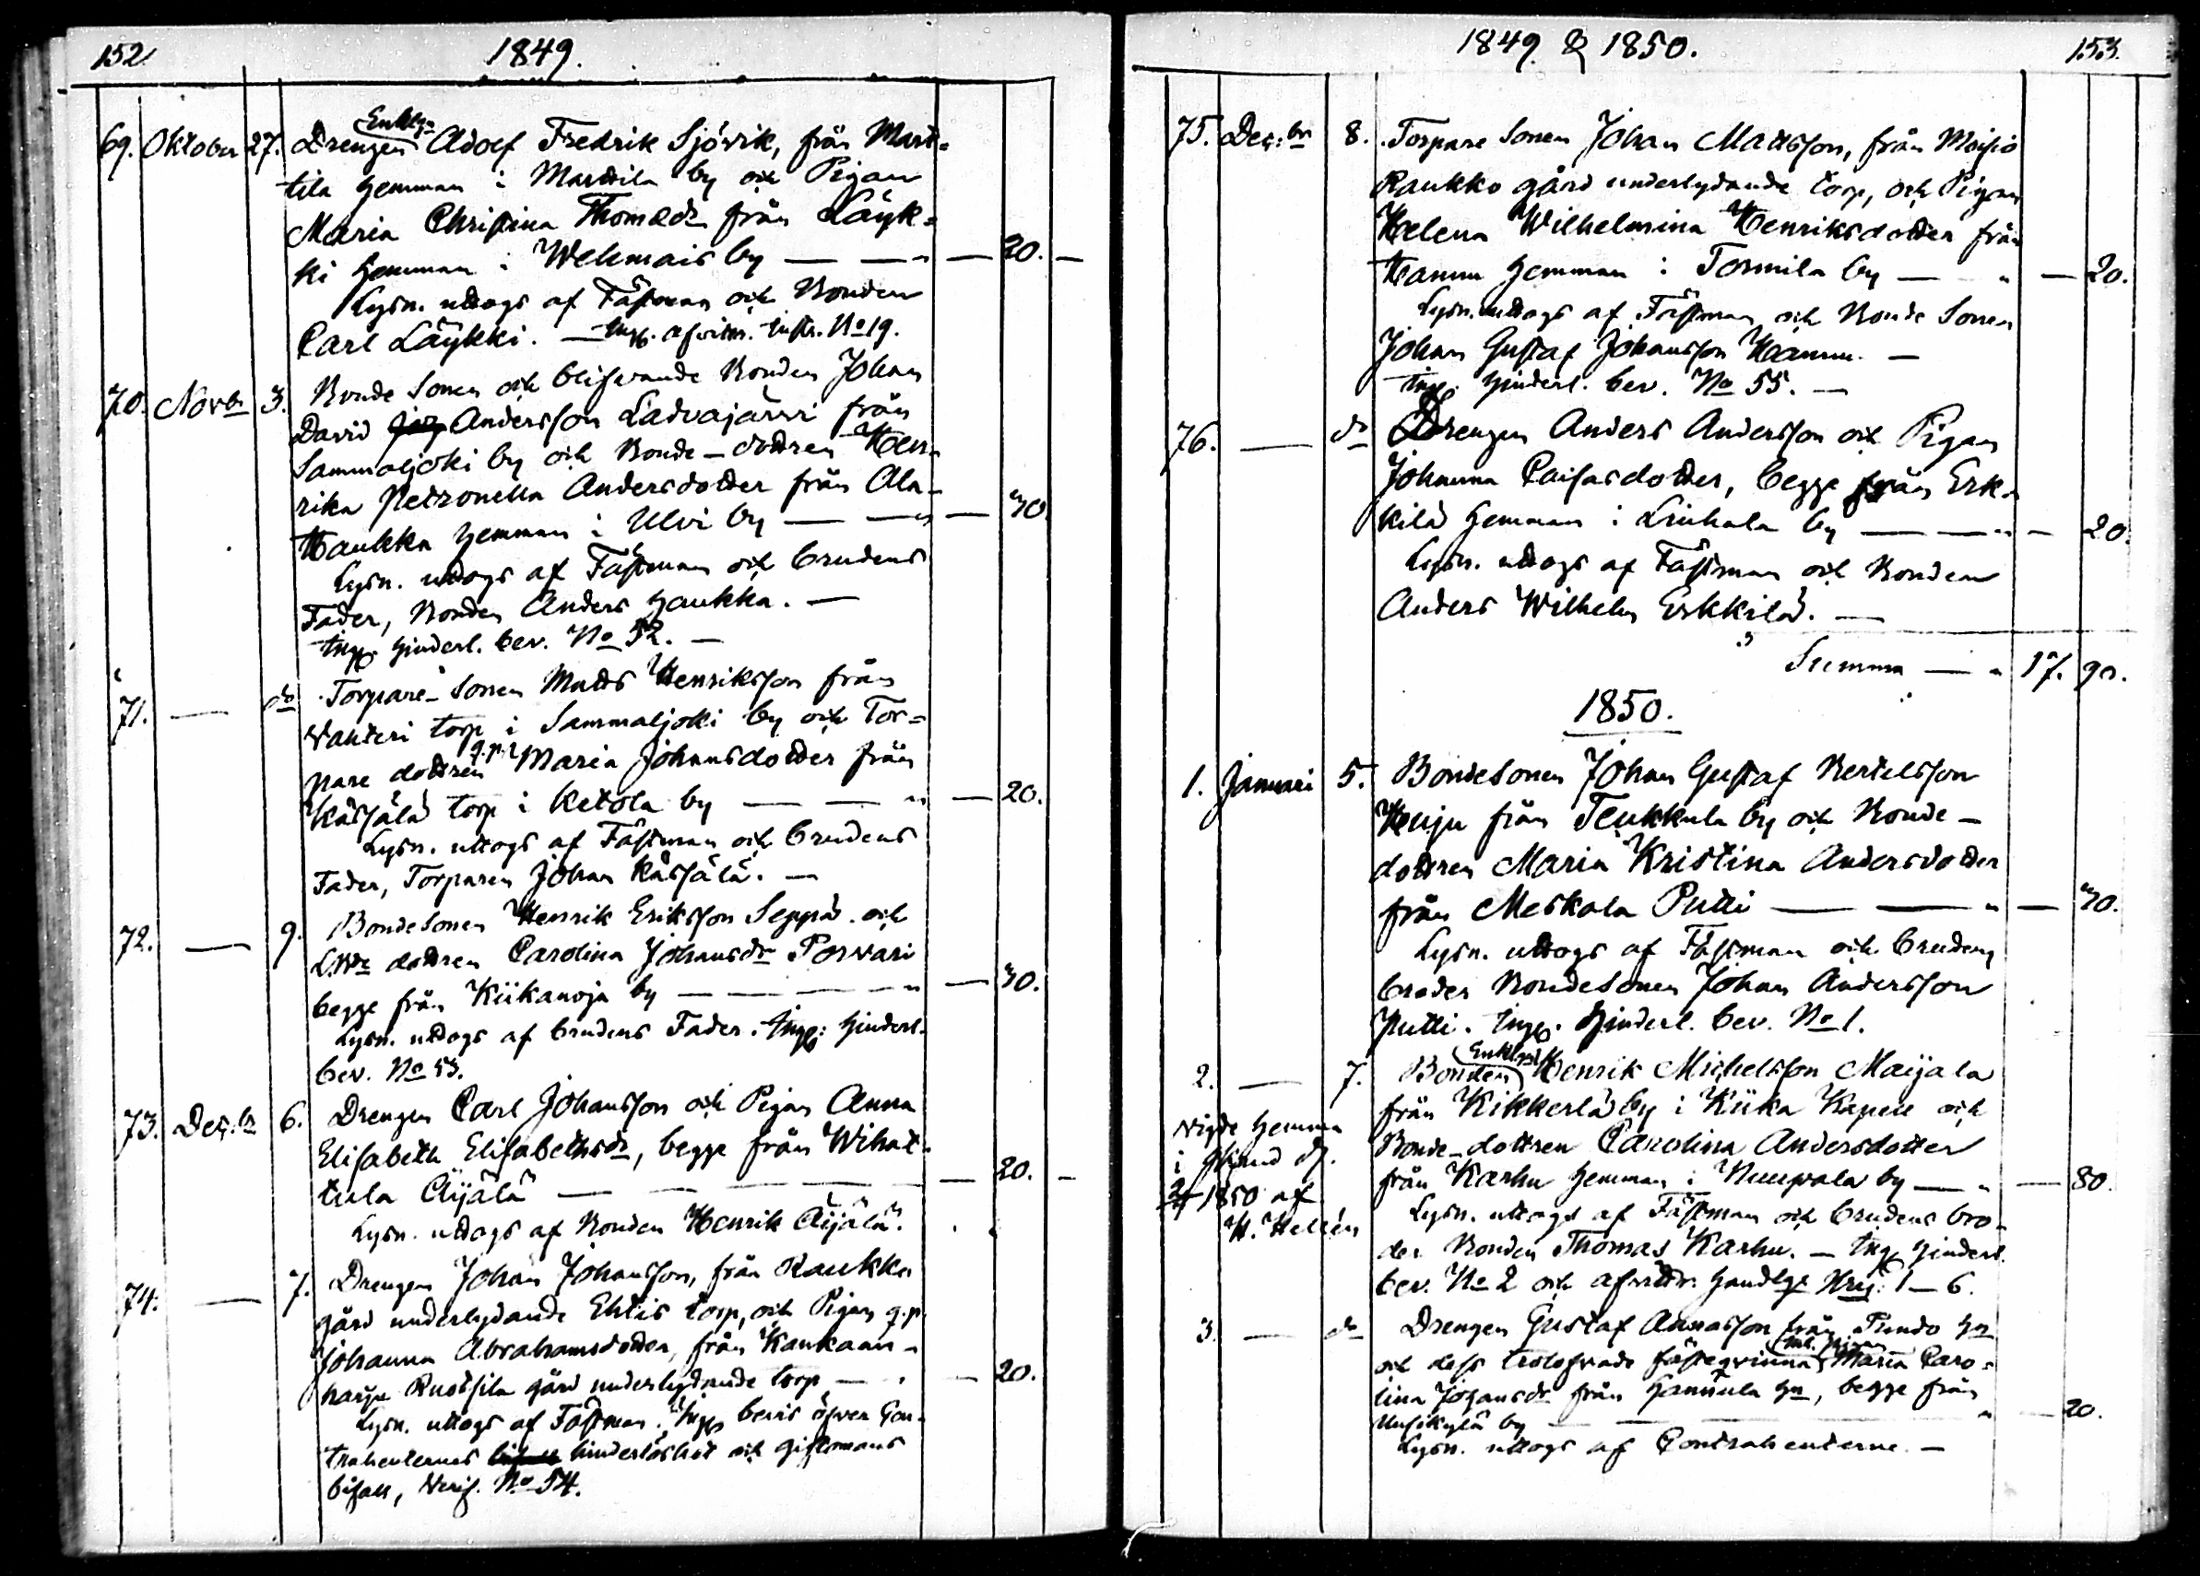 152
1849.
69. Oktober 27. Drengen Enkl:n Adolf Fredrik Sjövik, från Mart-
tila hemman i Marttila by och Pigan
Maria Christina Thomædr från Läyk-
ki hemman i Wehmais by — — " — 20. —
Lysn. uttogs af Fästman och Bonden
Carl Läykki. — Ing. afvittr. instr. No 19.
70. Novbr 3. Bonde Sonen och blifvande Bonden Johan
David Andersson Ladvajärvi från
Sammaljoki by och Bonde-dottren Hen-
rika Petronella Andersdotter från Ala-
Haukka hemman i Ulvi by — — " — 30
Lysn. uttogs af Fästman och brudens
Fader, Bonden Anders Haukka. —
Ing. hinderl. bev. No 52. —
71. — do Torpare-Sonen Matts Henriksson från
Vahteri torp i Sammaljoki by och Tor-
pare dottren q.p. Maria Johansdotter från
Kässälä torp i Ketola by — — " — 20.
Lysn. uttogs af Fästman och brudens
Fader, Torparen Johan Kässälä. —
72. — 9. Bondesonen Henrik Eriksson Seppä och
dottren Carolina Johansdr Porvari
begge från Kiikanoja by — — — " — 30.
Lysn. uttogs af brudens Fader. Ing: hinderl.
bev. No 53.
73. Dec:br 6. Drengen Carl Johansson och Pigan Anna
Elisabeth Elisabethsdr, begge från Wihat-
tula Äijälä — — — — 20. —
Lysn. uttogs af Bonden Henrik Äijälä.
74. — 7. Drengen Johan Johansson, från Raukko
gård underlydande Ehtis torp, och Pigan q.p.
Johanna Abrahamsdotter, från Kaukaan-
harju Ruotsila gård underlydande torp — " — 20.
Lysn. uttogs af Fästman. Ing bevis öfver Con-
trahenternes hinderlöshet och giftomans
bifall, Verif. No 54.
1849. & 1850.
153.
75. Dec:br 8. Torpare Sonen Johan Mattsson, från Moisio
Raukko gård underlydande torp, och Pigan
Helena Wilhelmina Henriksdotter från
Hannu hemman i Tormila by — " — 20.
Lysn. uttogs af Fästman och Bonde Sonen
Johan Gustaf Johansson Hannu. —
Ing. hinderl. bev. No 55. —
76. — do Drengen Anders Andersson och Pigan
Johanna Caisasdotter, begge från Erk-
kilä hemman i Liuhala by — — " — 20.
Lysn. uttogs af Fästman och Bonden
Anders Wilhelm Erkkilä. —
Summa — " 17. 90.
1850.
1. Januari 5. Bondesonen Johan Gustaf Bertelsson
Heiju från Teukkula by och Bonde-
dottren Maria Kristina Andersdotter
från Meskala Putti — — " — 30.
Lysn. uttogs af Fästman och brudens
broder Bondesonen Johan Andersson
Putti. Ing. Hinderl. bev. No 1.
2. — 7. Bonden Enkl. Henrik Michelsson Maijala
från Kikkerlä by i Kiika Kapell och
Bonde-dottren Carolina Andersdotter
från Karhu hemman i Nuupala by — " — 80.
Lysn. uttogs af Fästman och brudens bro-
der Bonden Thomas Karhu. — Ing hinderl.
bev. No 2 och afvittr. handlgr Nris 1—6.
Vigde hemma
i
1850 af
H. Hellén
3. — do Drengen Gustaf Annasson från Tundo hn
och dess trolofvade fästeqvinna Maria Caro-
lina Johansdr från Hannula hn, begge från
by — — — " — 20.
Lysn. uttogs af Contrahenterne. —